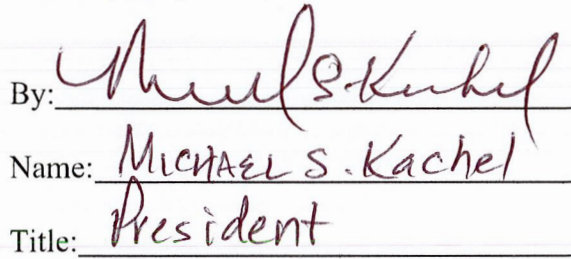 By: Michael S. Kachel
Name: MICHAEL S. Kachel
Title: President